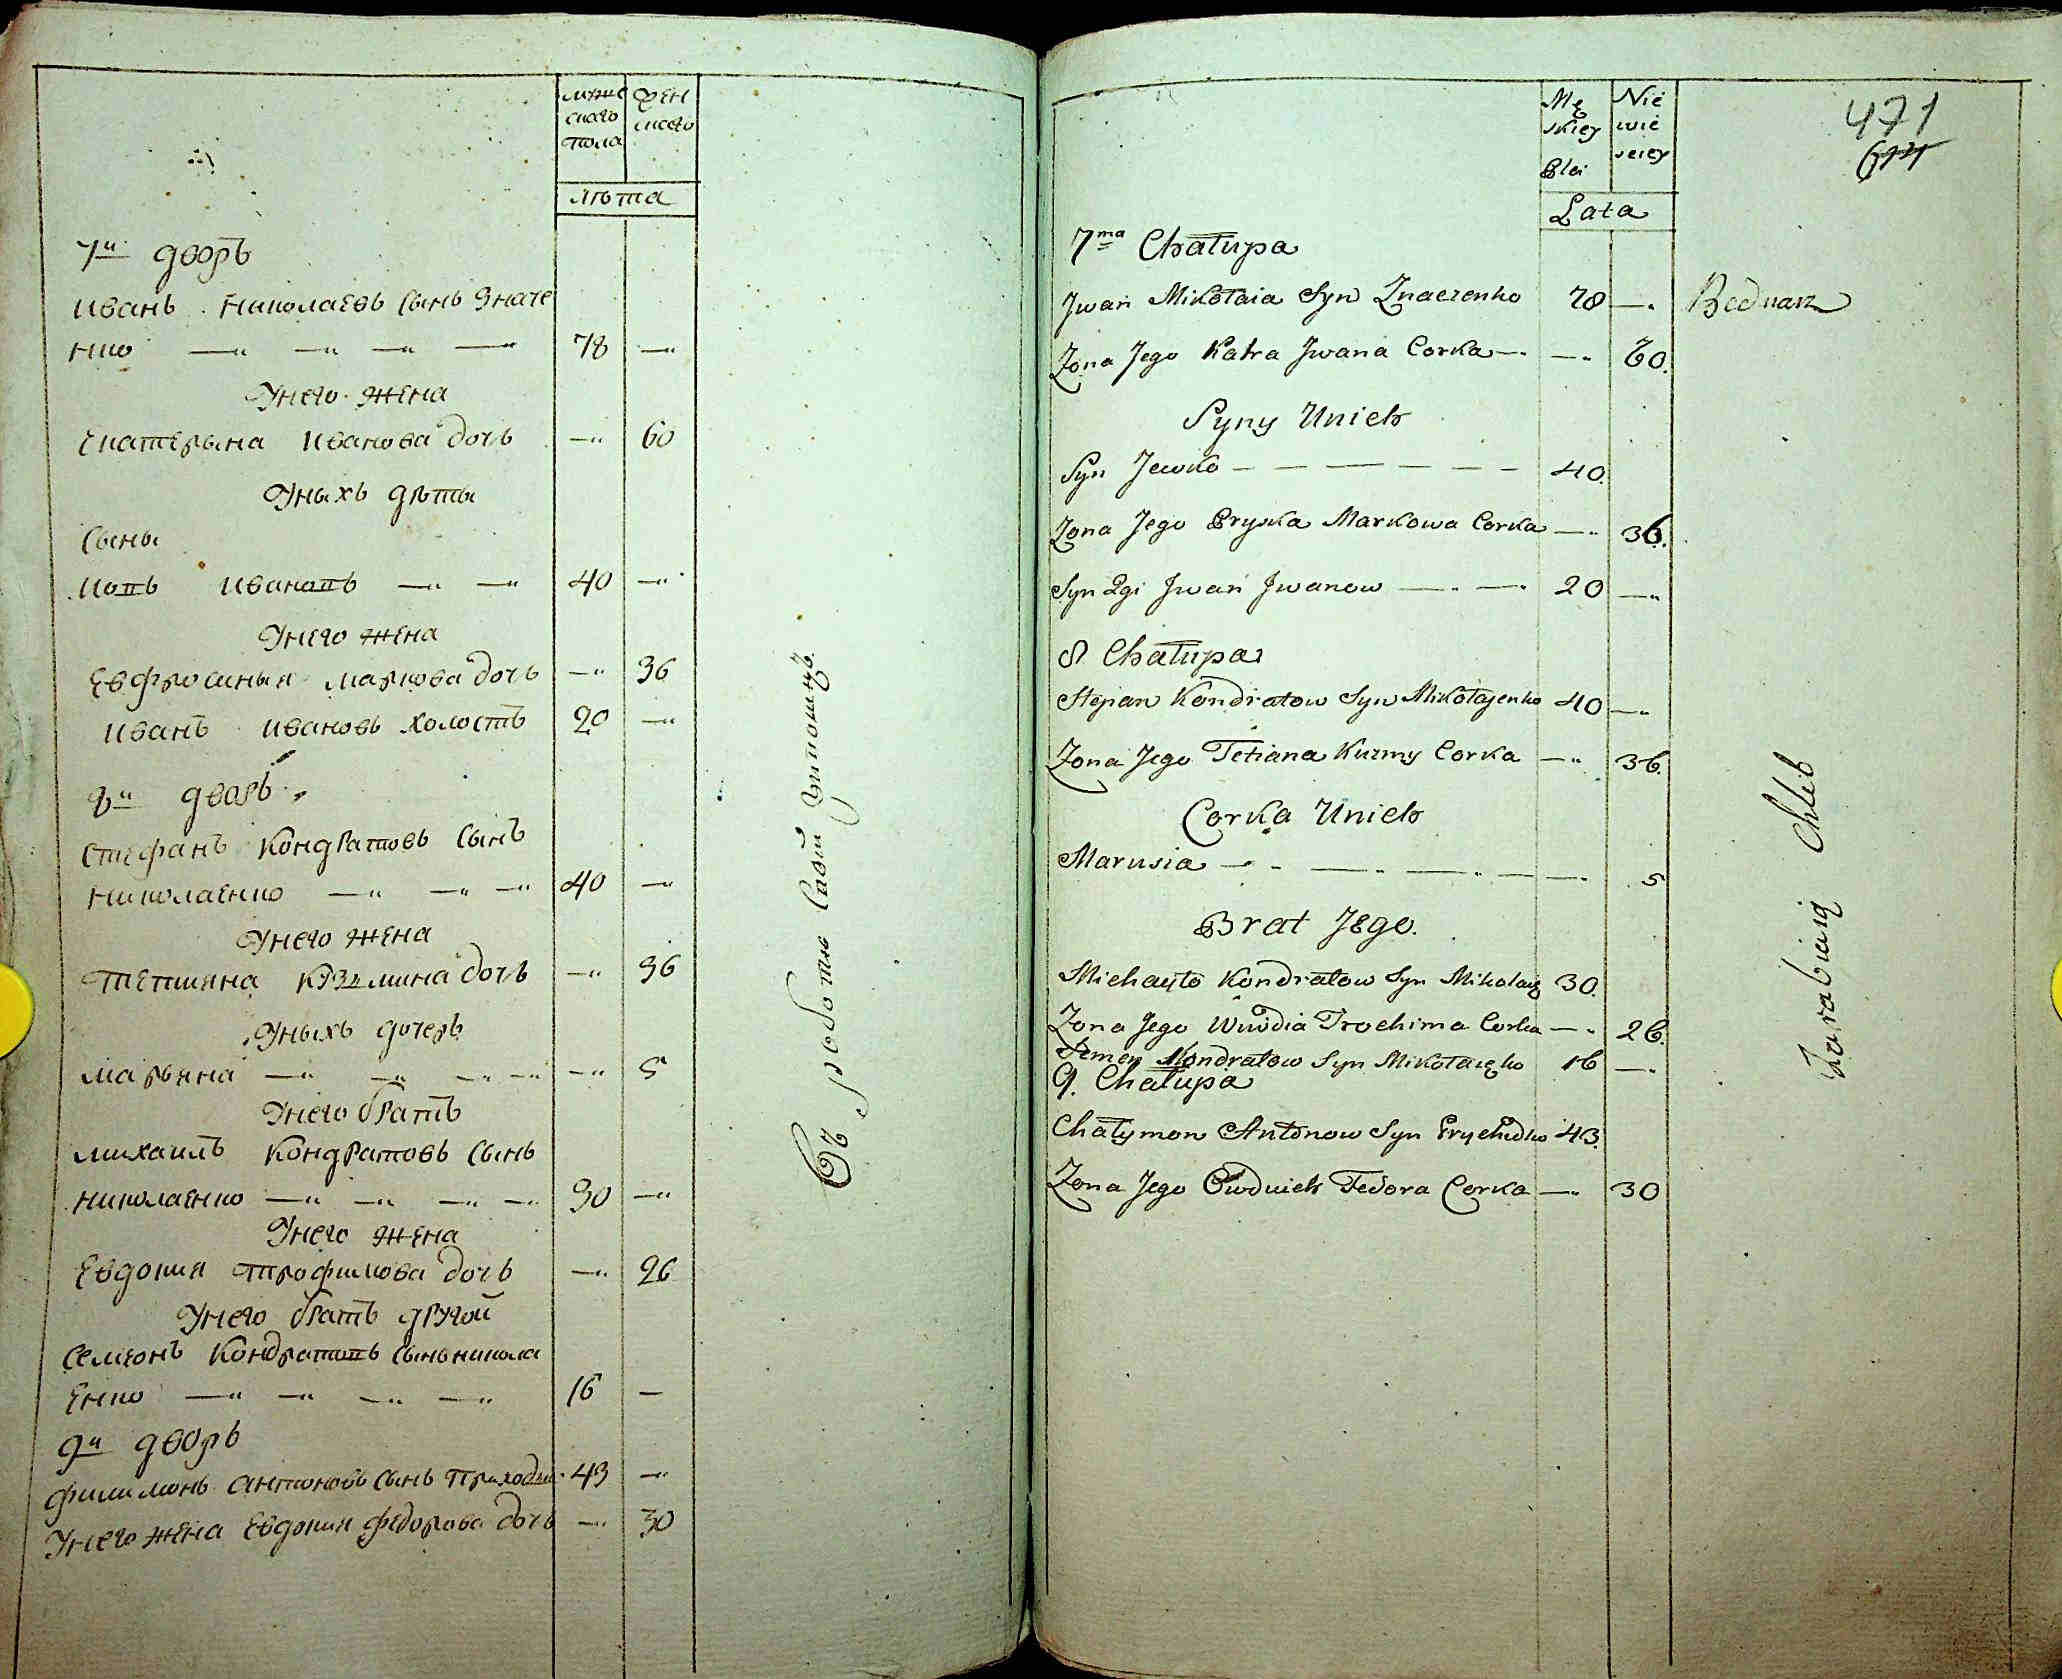 мужескаго пола
женскаго
лѣта
7й дворъ
Иванъ Николаевъ сынъ Значе
нко —„ —„ —„ —„ 78 —„
У него жена
Екатерына Иванова дочь —„ 60
У ныхъ дѣты
Сыны
Иовъ Ивановъ —„ —„ 40 —„
У него жена
Евфросиныя Маркова дочь —„ 36
Иванъ Ивановъ холостъ 20 —„
8й дворъ
Стефанъ Кондратовъ сынъ
Николаенко —„ —„ —„ 40 —„
У него жена
Тетияна Кузмина дочь —„ 36
У ныхъ дочерь
Марьяна —„ —„ —„ —„ —„ 5
У него братъ
Михаилъ Кондратовъ сынъ
Николаенко —„ —„ —„ —„ 30 —„
У него жена
Евдокия Трофимова дочь —„ 26
У него братъ другой
Семионъ Кондратовъ сынъ Никола
енко —„ —„ —„ —„ 16 —
9й дворъ
Филимонъ Антоновъ сынъ 43 —„
У него жена Евдокия Федорова дочь —„ 30
Mę
skiey
Płci
Nie
wie
sciey
Lata
471
7ma Chałupa
Jwan Mikołaia Syn Znaczenko 78 —„ Bednarz
Zona Jego Katra Jwana Corka —„ —„ 60.
Syny Unich
Syn Jewko — — — — — — 40.
Zona Jego Pryska Markowa Corka —„ 36.
Syn 2gi Jwan Jwanow —„ —„ 20 —„
8 Chałupa
Stepan Kondratow Syn Mikołajenko 40 —„
Zona Jego Tetiana Kuzmy Corka —„ 36.
Corka Unich
Marusia — — — — — — 5
Brat Jego.
Michayło Kondratow Syn Mikołaię 30.
Zona Jego Wiwdia Trochima Corka —„ 26.
Semen Kondratow Syn Mikołaięko 16 —„
9. Chałupa
Chałymon Antonow Syn 43.
Zona Jego Fedora Corka —„ 30
Zarabiaią Chleb